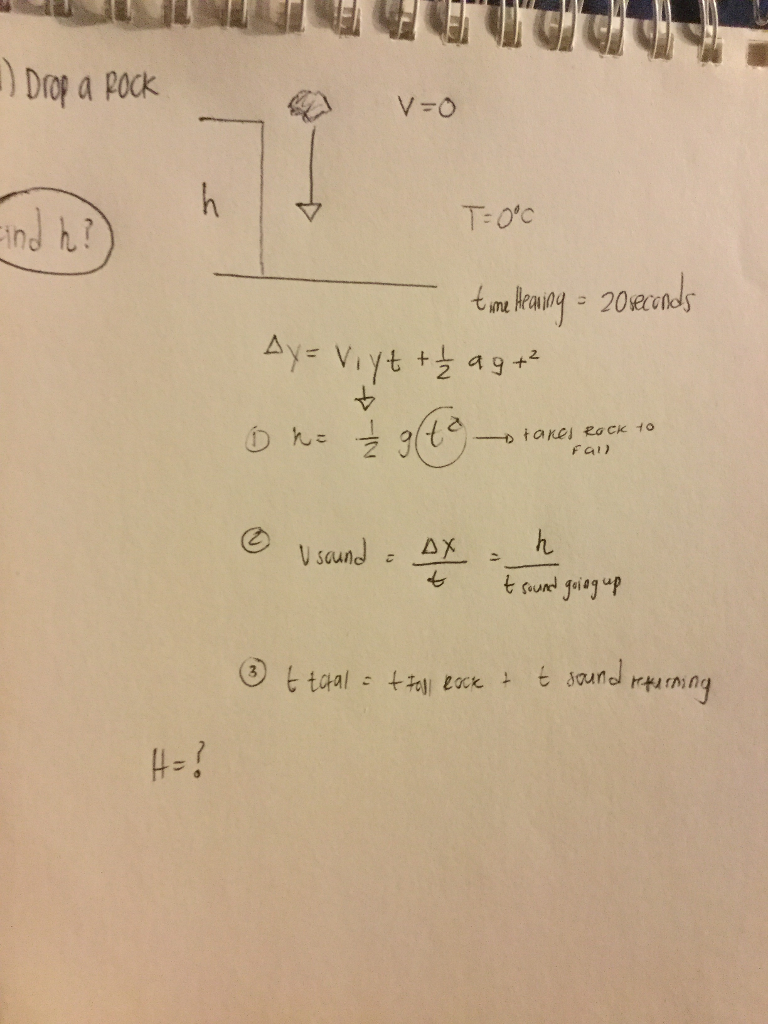 1) Drop a Rock
V=0
h
T=0°C
Find h?
time Hearing = 20 seconds
Δy= V₁yt + 1/2 a g t²
① h= 1/2 g t² → takes Rock to Fall
② V sound = Δx/t = h/t sound going up
③ t total = t fall Rock + t sound returning
H=?